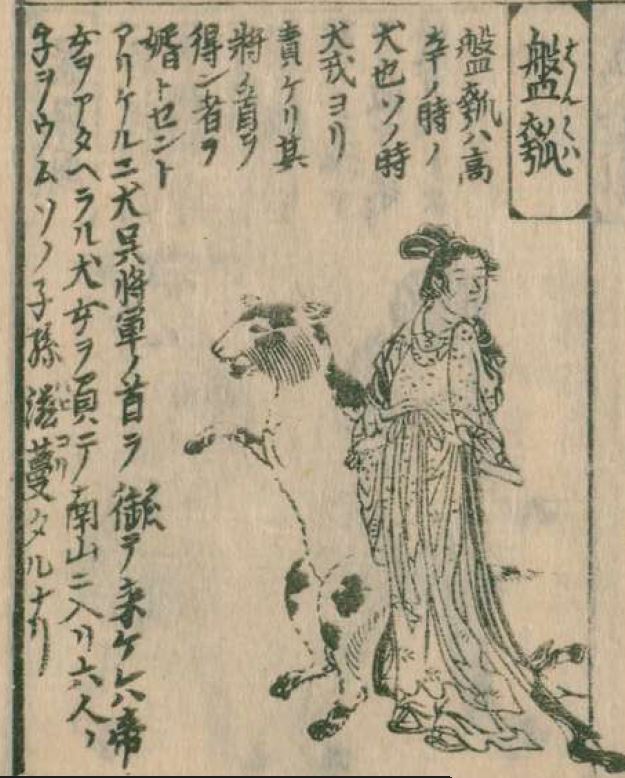 盤瓠
はんくハ
盤瓠ハ高
辛ノ時ノ
犬也ソノ時
犬戎ヨリ
責ケリ其
将ノ首ヲ
得ン者ヲ
婿トセント
アリケルニ犬呉将軍ノ首ヲ御テ来ケレハ帝
女ヲアタヘラル犬女ヲ負ニテ南山ニ入リ六人ノ
子ヲウムソノ子孫滋蔓タルナリ
ハビコリ